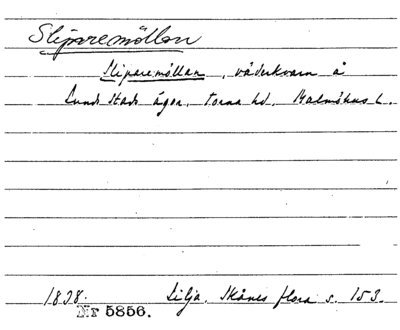 Sliparemöllan
Sliparemöllan, väderkvarn å
Lunds stads ägor. Torna hd. Malmöhus l.
1838. Lilja. Skånes flora s. 153.
Nr 5856.